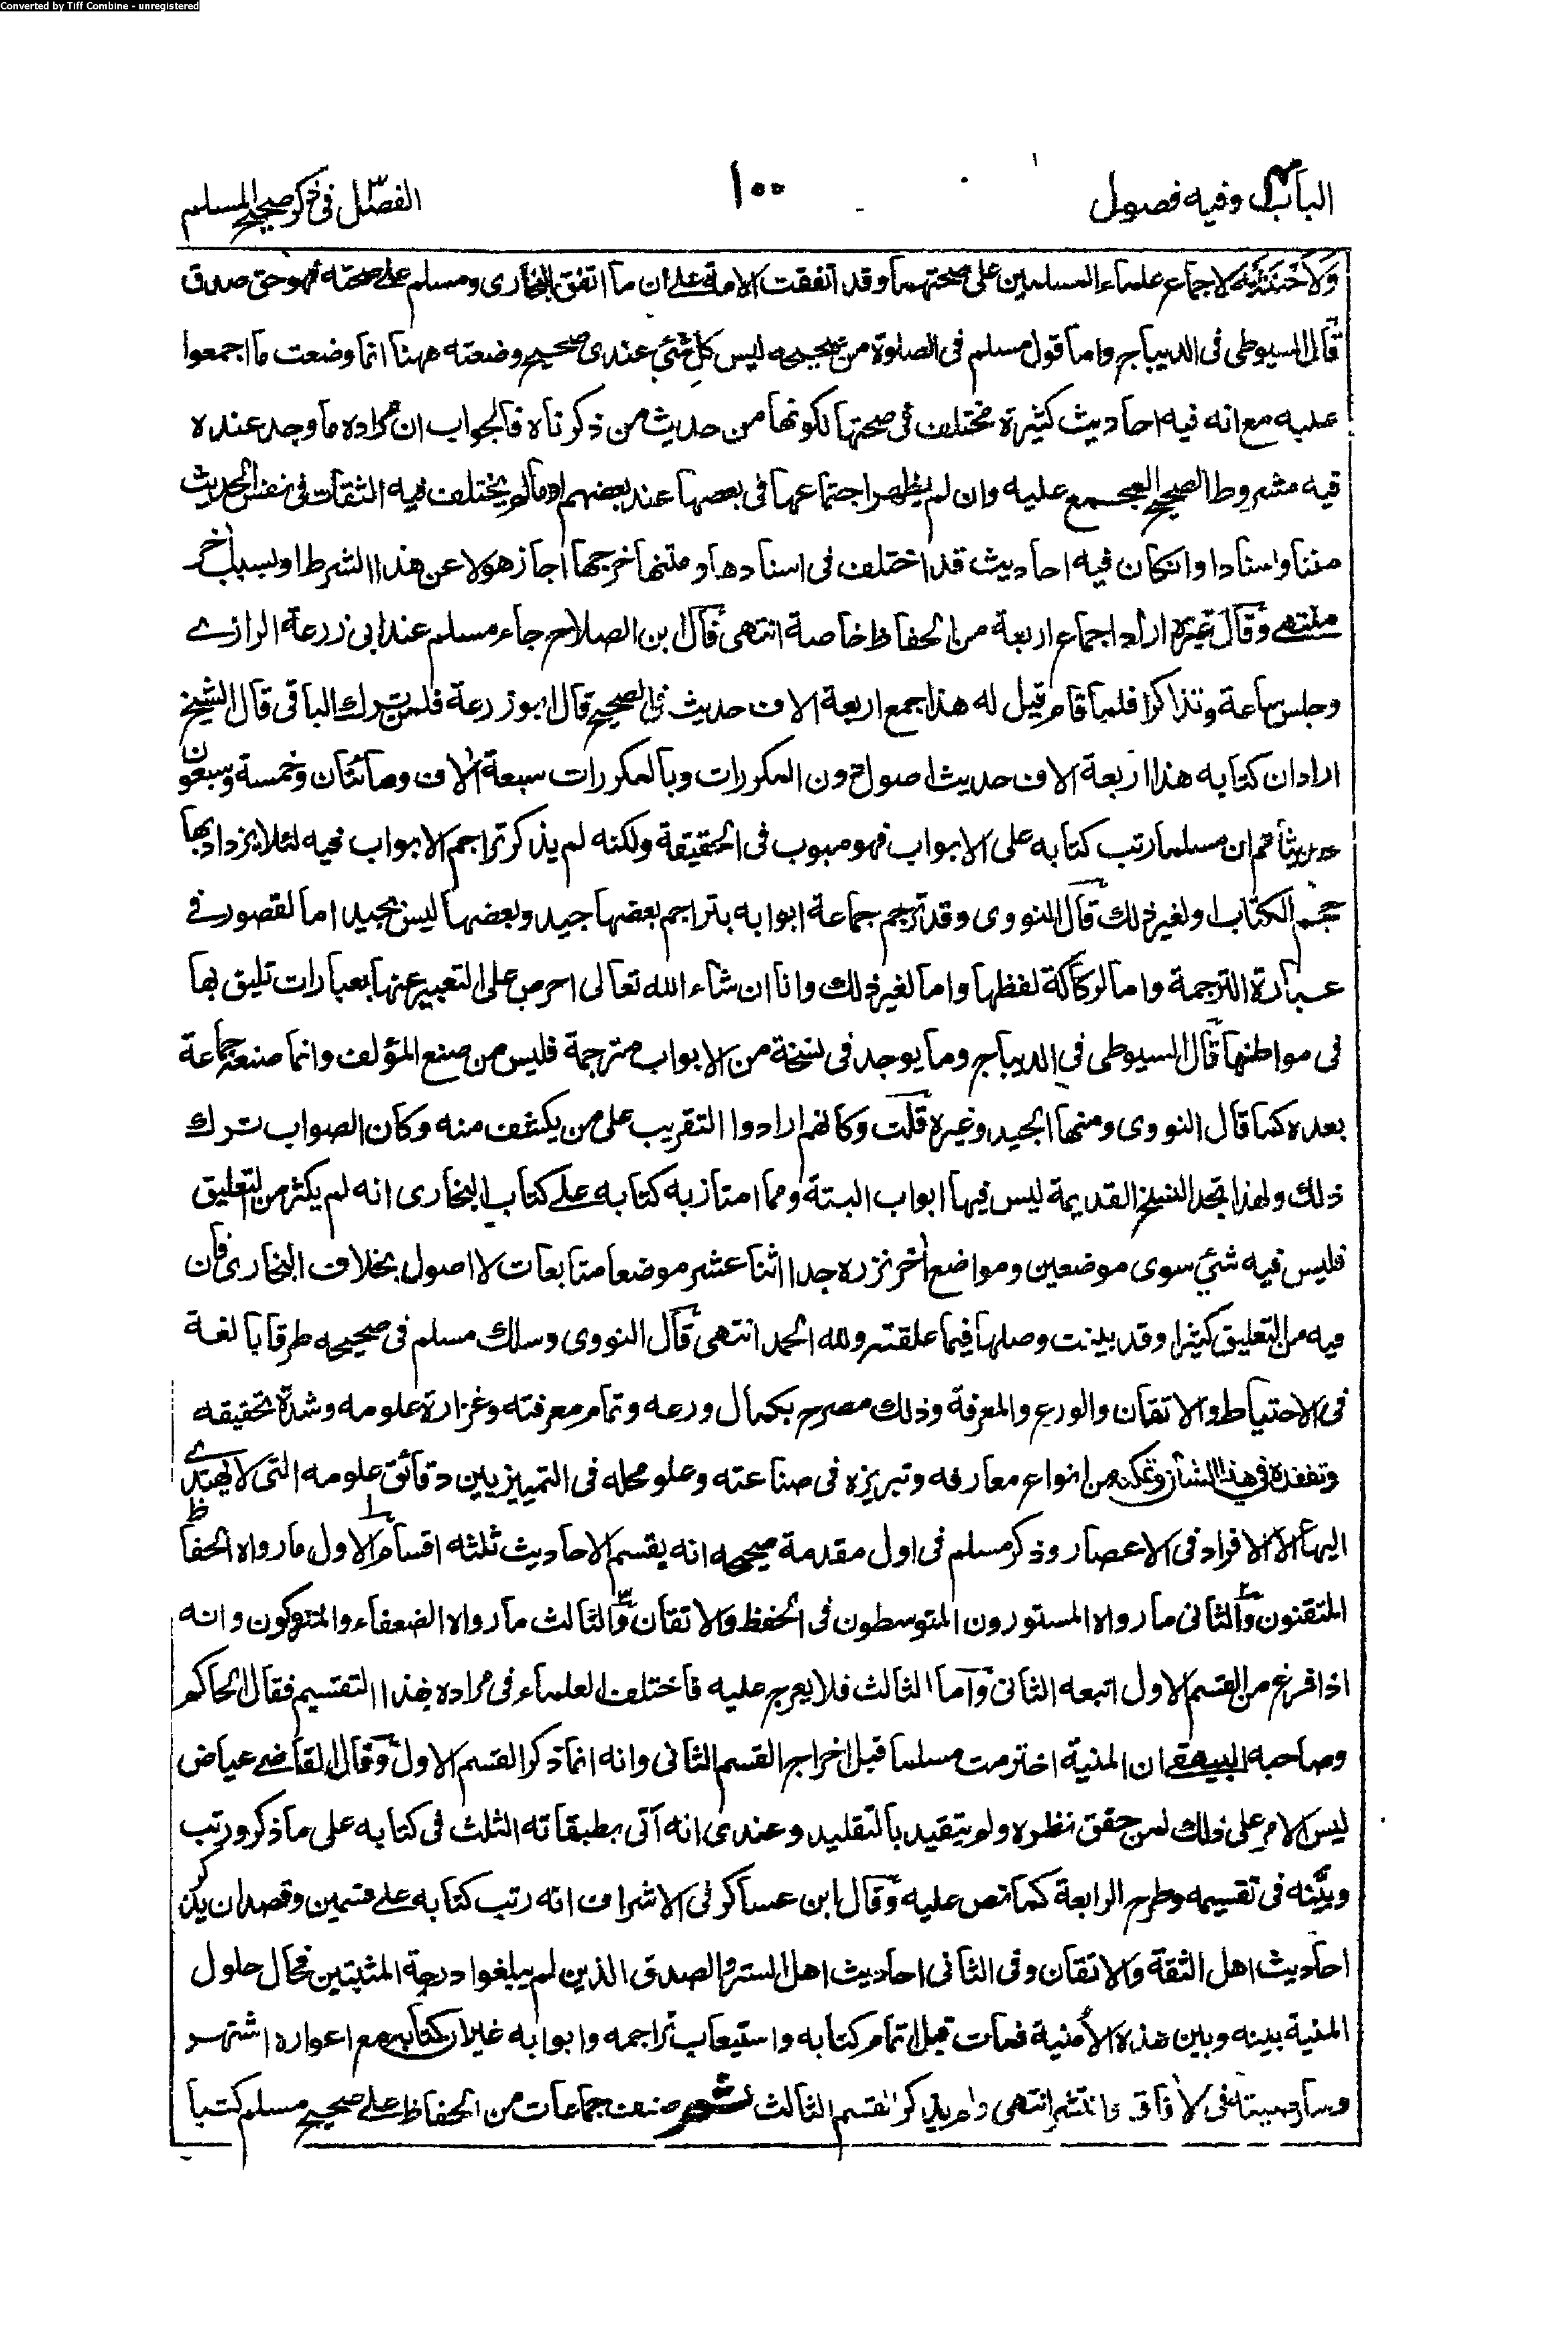 Converted by Tiff Combine - unregistered
الباب وفيه فصول
١٠٠
الفصل فى ذكر صحيح المسلم
لاجماع علماء المسلمين على صحتهما وقد اتفقت الامة على ان ما اتفق البخارى ومسلم على صحته فهو حق صدق
قال السيوطى فى الديباج واما قول مسلم فى الصلوة من صحيحه ليس كل شئ عندى صحيح وضعته ههنا انما وضعت ما اجمعوا
عليه مع انه فيه احاديث كثيرة مختلف فى صحتها لكونها من حديث من ذكرناه فالجواب ان مراده ما وجد عنده
فيه شروط الصحيح المجمع عليه وان لم يظهر اجتماعها فى بعضها عند بعضهم او ما لم يختلف فيه الثقات فى نفس الحديث
متنا واسنادا وانكان فيه احاديث قد اختلف فى اسنادها ومتنها اخرجها اجاز هولا عن هذا الشرط او لسبب اخر
منتهى وقال غيره اراد اجماع اربعة من الحفاظ خاصة انتهى قال ابن الصلاح جاء مسلم عند ابى زرعة الرازے
وجلس ساعة وتذاكرا فلما قام قيل له هذا جمع اربعة الاف حديث فى الصحيح قال ابو زرعة فلمن ترك الباقى قال الشيخ
اراد ان كتابه هذا اربعة الاف حديث اصول دون المكررات وبالمكررات سبعة الاف ومائتان وخمسة وسبعون
حديثا ثم ان مسلما رتب كتابه على الابواب فهو مبوب فى الحقيقة ولكنه لم يذكر تراجم الابواب فيه لئلا يزداد بها
حجم الكتاب او لغير ذلك قال النووى وقد ترجم جماعة ابوابه بتراجم بعضها جيد وبعضها ليس بجيد اما لقصور فے
عبارة الترجمة واما لركاكة لفظها واما لغير ذلك وانا ان شاء الله تعالى احرص على التعبير عنها بعبارات تليق بها
فى مواطنها قال السيوطى فى الديباج وما يوجد فى نسخة من الابواب مترجمة فليس من صنع المؤلف وانما صنعه جماعة
بعده كما قال النووى ومنها الجيد وغيره قلت وكانهم ارادوا التقريب على من يكشف منه وكان الصواب ترك
ذلك ولهذا تجد النسخ القديمة ليس فيها ابواب البتة ومما امتاز به كتابه علے كتاب البخارى انه لم يكثر من التعليق
فليس فيه شئ سوى موضعين ومواضع اخر نزرة جدا اثنا عشر موضعا متابعات لا اصول بخلاف البخارى فان
فيه من التعليق كثيرا وقد بينت وصلها فيما علقته ولله الحمد انتهى قال النووى وسلك مسلم فى صحيحه طرقا بالغة
فى الاحتياط والاتقان والورع والمعرفة وذلك مصرح بكمال ورعه وتمام معرفته وغزارة علومه وشدة تحقيقه
وتفقده فى هذا الشان وتمكنه من انواع معارفه وتبريزه فى صناعته وعلو محله فى التمييز بين دقائق علومه التى لا يهتدے
اليها الا الافراد فى الاعصار وذكر مسلم فى اول مقدمة صحيحه انه يقسم الاحاديث ثلثه اقسام الاول ما رواه الحفاظ
المتقنون والثانى ما رواه المستورون المتوسطون فى الحفظ والاتقان والثالث ما رواه الضعفاء والمتروكون وانه
اذا فرغ من القسم الاول اتبعه الثانى واما الثالث فلا يعرج عليه فاختلف العلماء فى مراده بهذا التقسيم فقال الحاكم
وصاحبه البيهقے ان المنية اخترمت مسلما قبل اخراج القسم الثانى وانه انما ذكر القسم الاول وقال القاضے عياض
ليس الامر على ذلك لمن حقق نظره ولم يتقيد بالتقليد وعندى انه اتى بطبقاته الثلث فى كتابه على ما ذكر ورتب
وبيّنه فى تقسيمه وطرح الرابعة كما نص عليه وقال ابن عساكر فى الاشراف انه رتب كتابه علے قسمين وقصد ان يذكر
احاديث اهل الثقة والاتقان وفى الثانى احاديث اهل الستر والصدق الذين لم يبلغوا درجة المثبتين فحال حلول
المنية بينه وبين هذه الأمنية فمات قبل اتمام كتابه واستيعاب تراجمه وابوابه غير ان كتابه مع اعواره اشتهر
وسار صيته فى الافاق وانتشر انتهى ولم يذكر القسم الثالث ثم صنف جماعات من الحفاظ علے صحيح مسلم كتبا